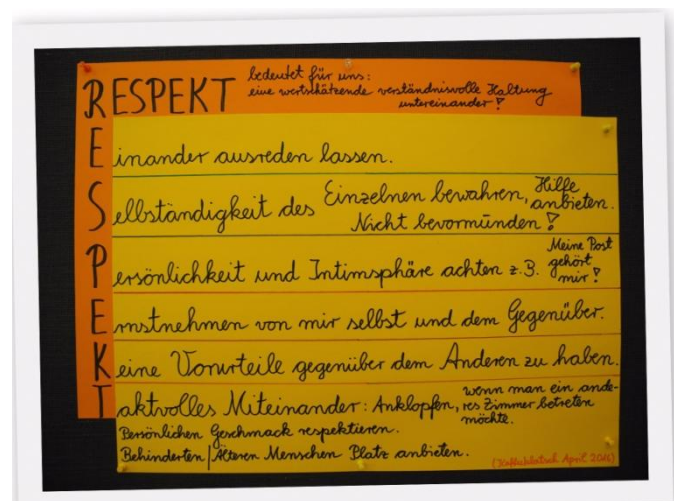 RESPEKT bedeutet für uns:
eine wertschätzende verständnisvolle Haltung
untereinander!
Einander ausreden lassen.
Selbständigkeit des Einzelnen bewahren, Hilfe anbieten.
Nicht bevormünden!
Persönlichkeit und Intimsphäre achten z.B. Meine Post
gehört
mir!
Ernstnehmen von mir selbst und dem Gegenüber.
Keine Vorurteile gegenüber dem Anderen zu haben.
Taktvolles Miteinander: Anklopfen, wenn man ein ande-
res Zimmer betreten
möchte.
Persönlichen Geschmack respektieren.
Behinderten/Älteren Menschen Platz anbieten.
April 2016)